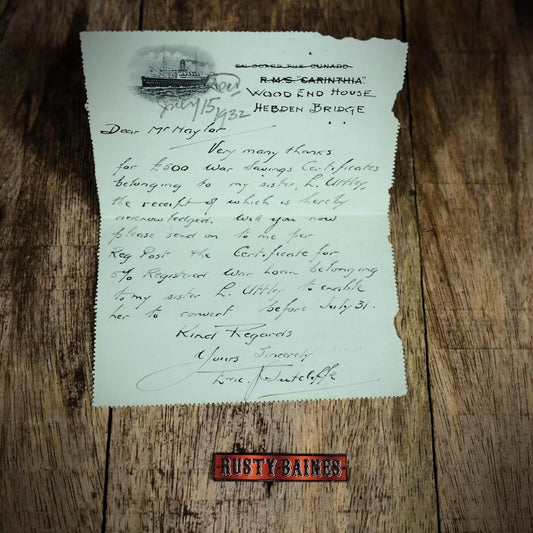 ON BOARD THE CUNARD
R.M.S. "CARINTHIA"
WOOD END HOUSE
HEBDEN BRIDGE
Recd
July 15
1932
Dear Mr Naylor
Very many thanks
for £500 War Savings Certificates
belonging to my sister, L. Uttley,
the receipt of which is hereby
acknowledged. Will you now
please send on to me per
Reg Post the Certificate for
5% Registered War Loan belonging
to my sister L. Uttley to enable
her to convert before July 31.
Kind Regards
Yours Sincerely
Sutcliffe
RUSTY BAINES